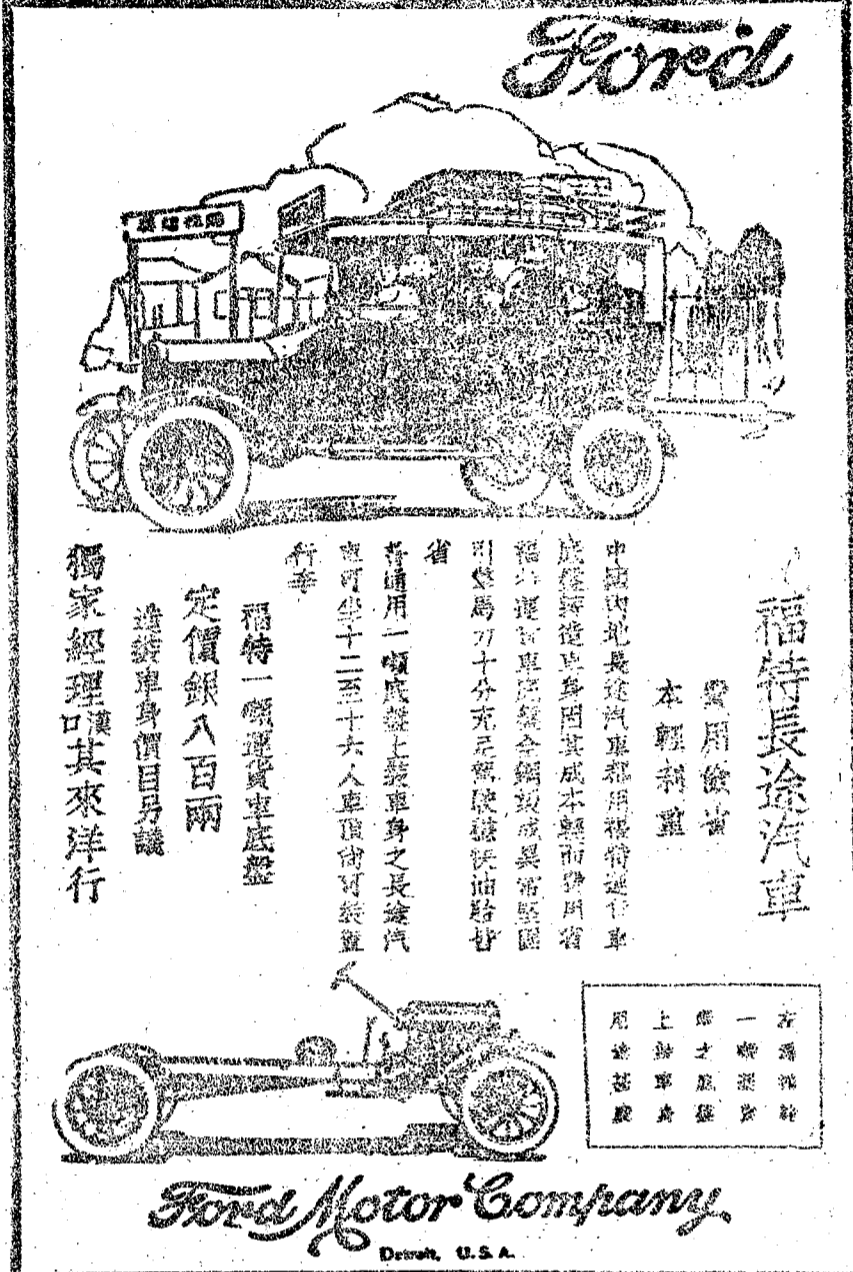 Ford
福特長途汽車
費用儉省
本輕利重
中國內地長途汽車都用福特運貨車
底盤諸造車身因其成本輕而費用省
福特運貨車底盤全鋼製成異常堅固
引擎馬力十分充足駕駛穩快油費甘
省
普通用一噸底盤上裝車身之長途汽
車可坐十二至十六人車頂尚可裝置
行李
福特一噸運貨車底盤
定價銀八百兩
造裝車身價目另議
獨家經理漢口其來洋行
一噸運貨
上裝車身
Ford Motor Company
Detroit, U.S.A.